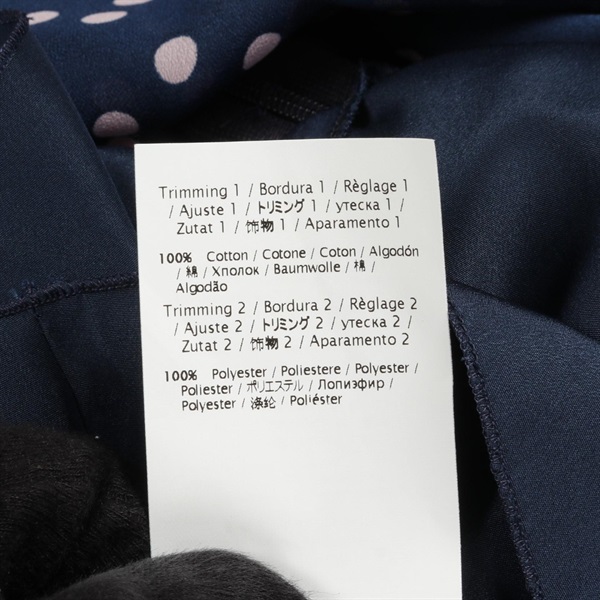 Trimming 1 / Bordura 1 / Règlage 1
/ Ajuste 1 / トリミング 1 / утеска 1 /
Zutat 1 / 饰物 1 / Aparamento 1
100% Cotton / Cotone / Coton / Algodón
/ 綿 / Хполок / Baumwolle / 棉 /
Algodão
Trimming 2 / Bordura 2 / Règlage 2
/ Ajuste 2 / トリミング 2 / утеска 2 /
Zutat 2 / 饰物 2 / Aparamento 2
100% Polyester / Poliestere / Polyester /
Poliester / ポリエステル / Лопиэфир /
Polyester / 涤纶 / Poliéster